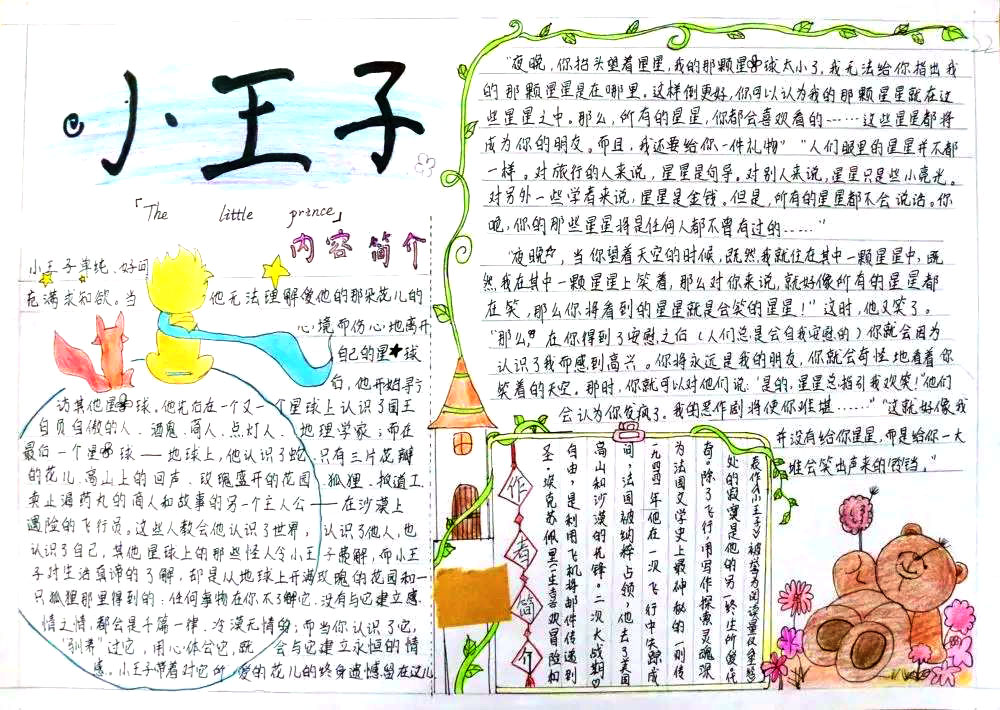 小王子
「The little prince」
内容简介
小王子单纯、好问
充满求知欲。当他无法理解像他的那朵花儿的
心境而伤心地离开
自己的星球
后，他开始寻
访其他星球。他先后在一个又一个星球上认识了国王
自负自傲的人、酒鬼、商人、点灯人、地理学家；而在
最后一个星球——地球上，他认识了蛇、只有三片花瓣
的花儿、高山上的回声、玫瑰盛开的花园、狐狸、扳道工、
卖止渴药丸的商人和故事的另一个主人公——在沙漠上
遇险的飞行员。这些人教会他认识了世界，认识了他人，也
认识了自己，其他星球上的那些怪人令小王子费解，而小王
子对生活真谛的了解，却是从地球上开满玫瑰的花园和一
只狐狸那里得到的：任何事物在你不了解它、没有与它建立感
情之情，都会是千篇一律、冷漠无情的；而当你认识了它，
“驯养”过它，用心体会它，既会与它建立永恒的情
感。小王子带着对它所爱的花儿的终身遗憾留在这儿
“夜晚，你抬头望着星星，我的那颗星球太小了，我无法给你指出我
的那颗星星是在哪里。这样倒更好，你可以认为我的那颗星星就在这
些星星之中。那么，所有的星星，你都会喜欢看的……这些星星都将
成为你的朋友。而且，我还要给你一件礼物”“人们眼里的星星并不都
一样。对旅行的人来说，星星是向导。对别人来说，星星只是些小亮光。
对另外一些学者来说，星星是金钱。但是，所有的星星都不会说话。你
呢，你的那些星星将是任何人都不曾有过的……”
“夜晚，当你望着天空的时候，既然我就住在其中一颗星星中，既
然我在其中一颗星星上笑着，那么对你来说，就好像所有的星星都
在笑，那么你将看到的星星就是会笑的星星！”这时，他又笑了。
“那么，在你得到了安慰之后（人们总是会自我安慰的）你就会因为
认识了我而感到高兴。你将永远是我的朋友，你就会奇怪地看着你
笑着的天空。那时，你就可以对他们说：“是的，星星总指引我欢笑！”他们
会认为你发疯了。我的恶作剧将使你难堪……”“这就好像我
并没有给你星星，而是给你一大
堆会笑出声来的铃铛。”
作者简介
表作《小王子》被誉为阅读量仅
处的寂寞是他的另一终生所爱。代
奇。除了飞行，用写作探索灵魂深
为法国文学史上最神秘的一则传
九四四年他在一次飞行中失踪成
间，法国被纳粹占领，他去了美国
高山和沙漠的先锋。二次大战期
自由，是利用飞机将邮件传递到
圣·埃克苏佩里一生喜欢冒险和